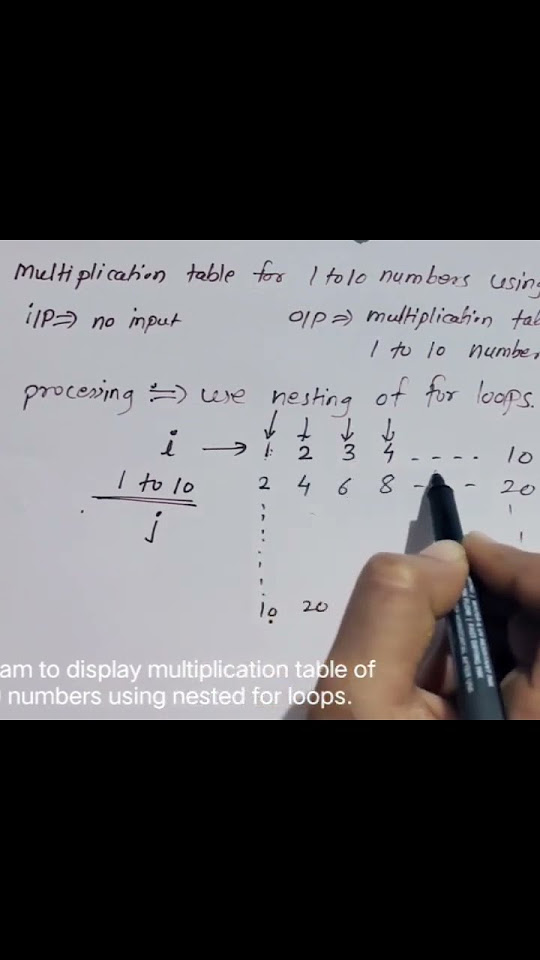 Multiplication table for 1 to 10 numbers using
i/P => no input
O/P => multiplication tab
1 to 10 number
processing :=> use nesting of for loops.
i → 1 2 3 4 ---- 10
1 to 10 2 4 6 8 - - - 20
j
10 20
am to display multiplication table of
numbers using nested for loops.